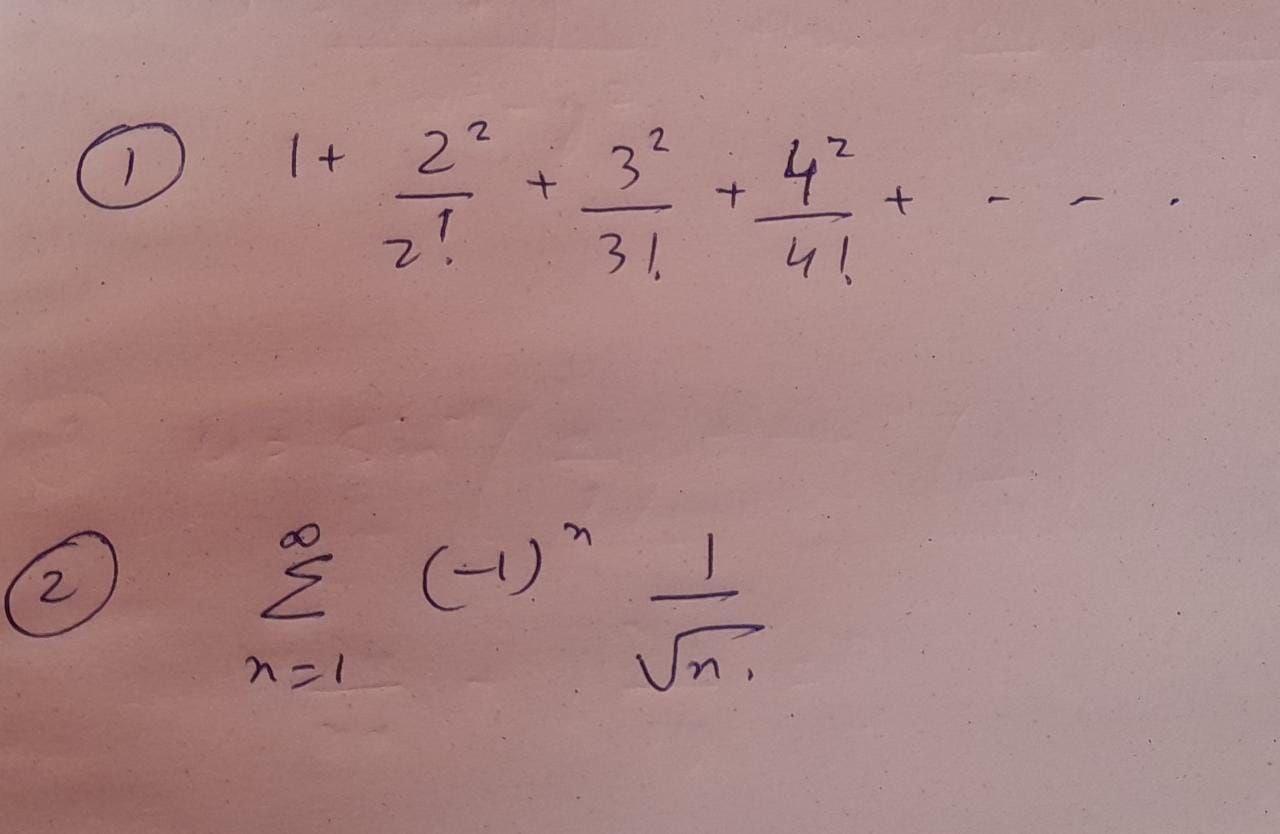 ① 1 + 2²/2! + 3²/3! + 4²/4! + - - .
② ∞∑n=1 (-1)ⁿ 1/√n.